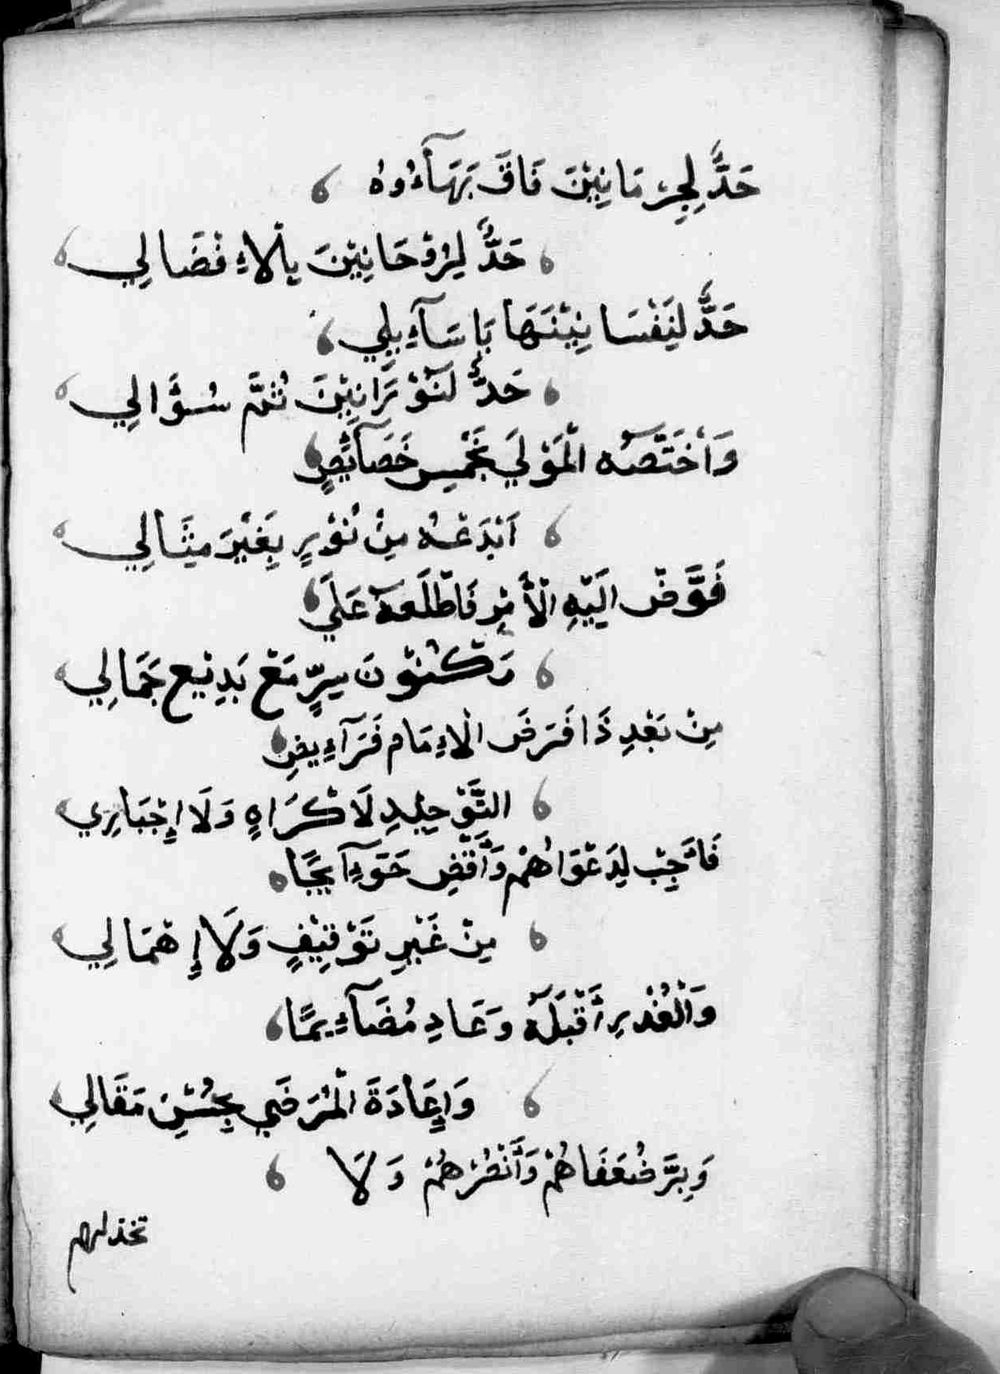 حَدٌّ لِجِرْمَانِيْنَ فَاقَ بَهَآءُوهُ
حَدٌّ لِرُوْحَانِيْنَ بِلَاءِ فْضَالِي
حَدٌّ لِنَفْسَانِيْنَهَا يَا سَآءِيلِي
حَدٌّ لَنَوْرَانِيْنَ تُمَّ سُؤَالِي
وَاَخْتَصَّهُ الْمَوْلَي بَخَمْسِ خَصَآئِصٍ
اَبْدَعْهُ مِنْ نُوْرٍ بِغَيْرَ مِثَالِي
فَوَّضْ اِلَيْهِ الْأَمْرِ فَاطْلَعَهُ عَلَي
مَكْنُوْنَ سِرٍّ مَعْ بَدِيْعِ جَمَالِي
مِنْ بَعْدِ ذَا فَرَضَ الْاِمَام فَرَآءِيضِ
التَّوْحِيْدِ لَا كْرَاهٍ وَلَا إِجْبَارِي
فَأَجِبْ لِدَعْوَاهُمْ وَأَقْضِ حَوَآءِيجًا
مِنْ غَيْرِ تَوْقِيْفٍ وَلَا إِهْمَالِي
وَالْعُذْرِ أَقْبَلَهُ وَعَادِ مُضَآءِيمًا
وَإِعَادَةَ الْمَرَضَي بِحُسْنِ مَقَالِي
وَبِرَّ ضُعَفَاهُمْ وَأَنْصُرْهُمْ وَلَا
تخذلهم